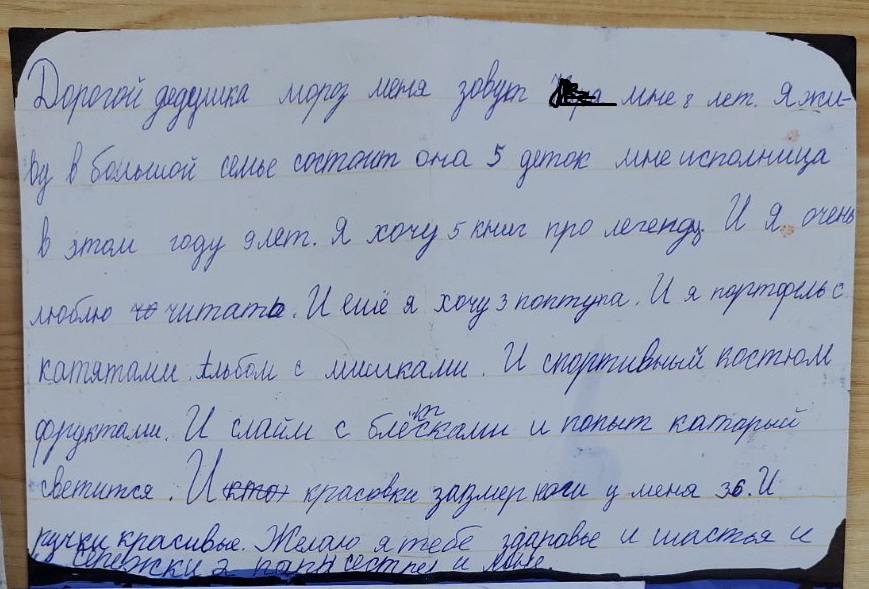 Дорогой дедушка мороз меня зовут мне 8 лет. Я жи-
ву в большой семье состоит она 5 деток мне исполница
в этом году 9 лет. Я хочу 5 книг про легенды. И Я очень
люблю читать. И ещё я хочу 3 поптупа. И я портфель с
катятами. Альбом с мишками. И спортивный костюм
фруктами. И слайм с блёстками и попыт катарый
светится. И красовки зазмер ноги у меня 36. И
ручки красивые. Желаю я тебе здаровье и щастья и
серёжки 2 пары сестре и мне.